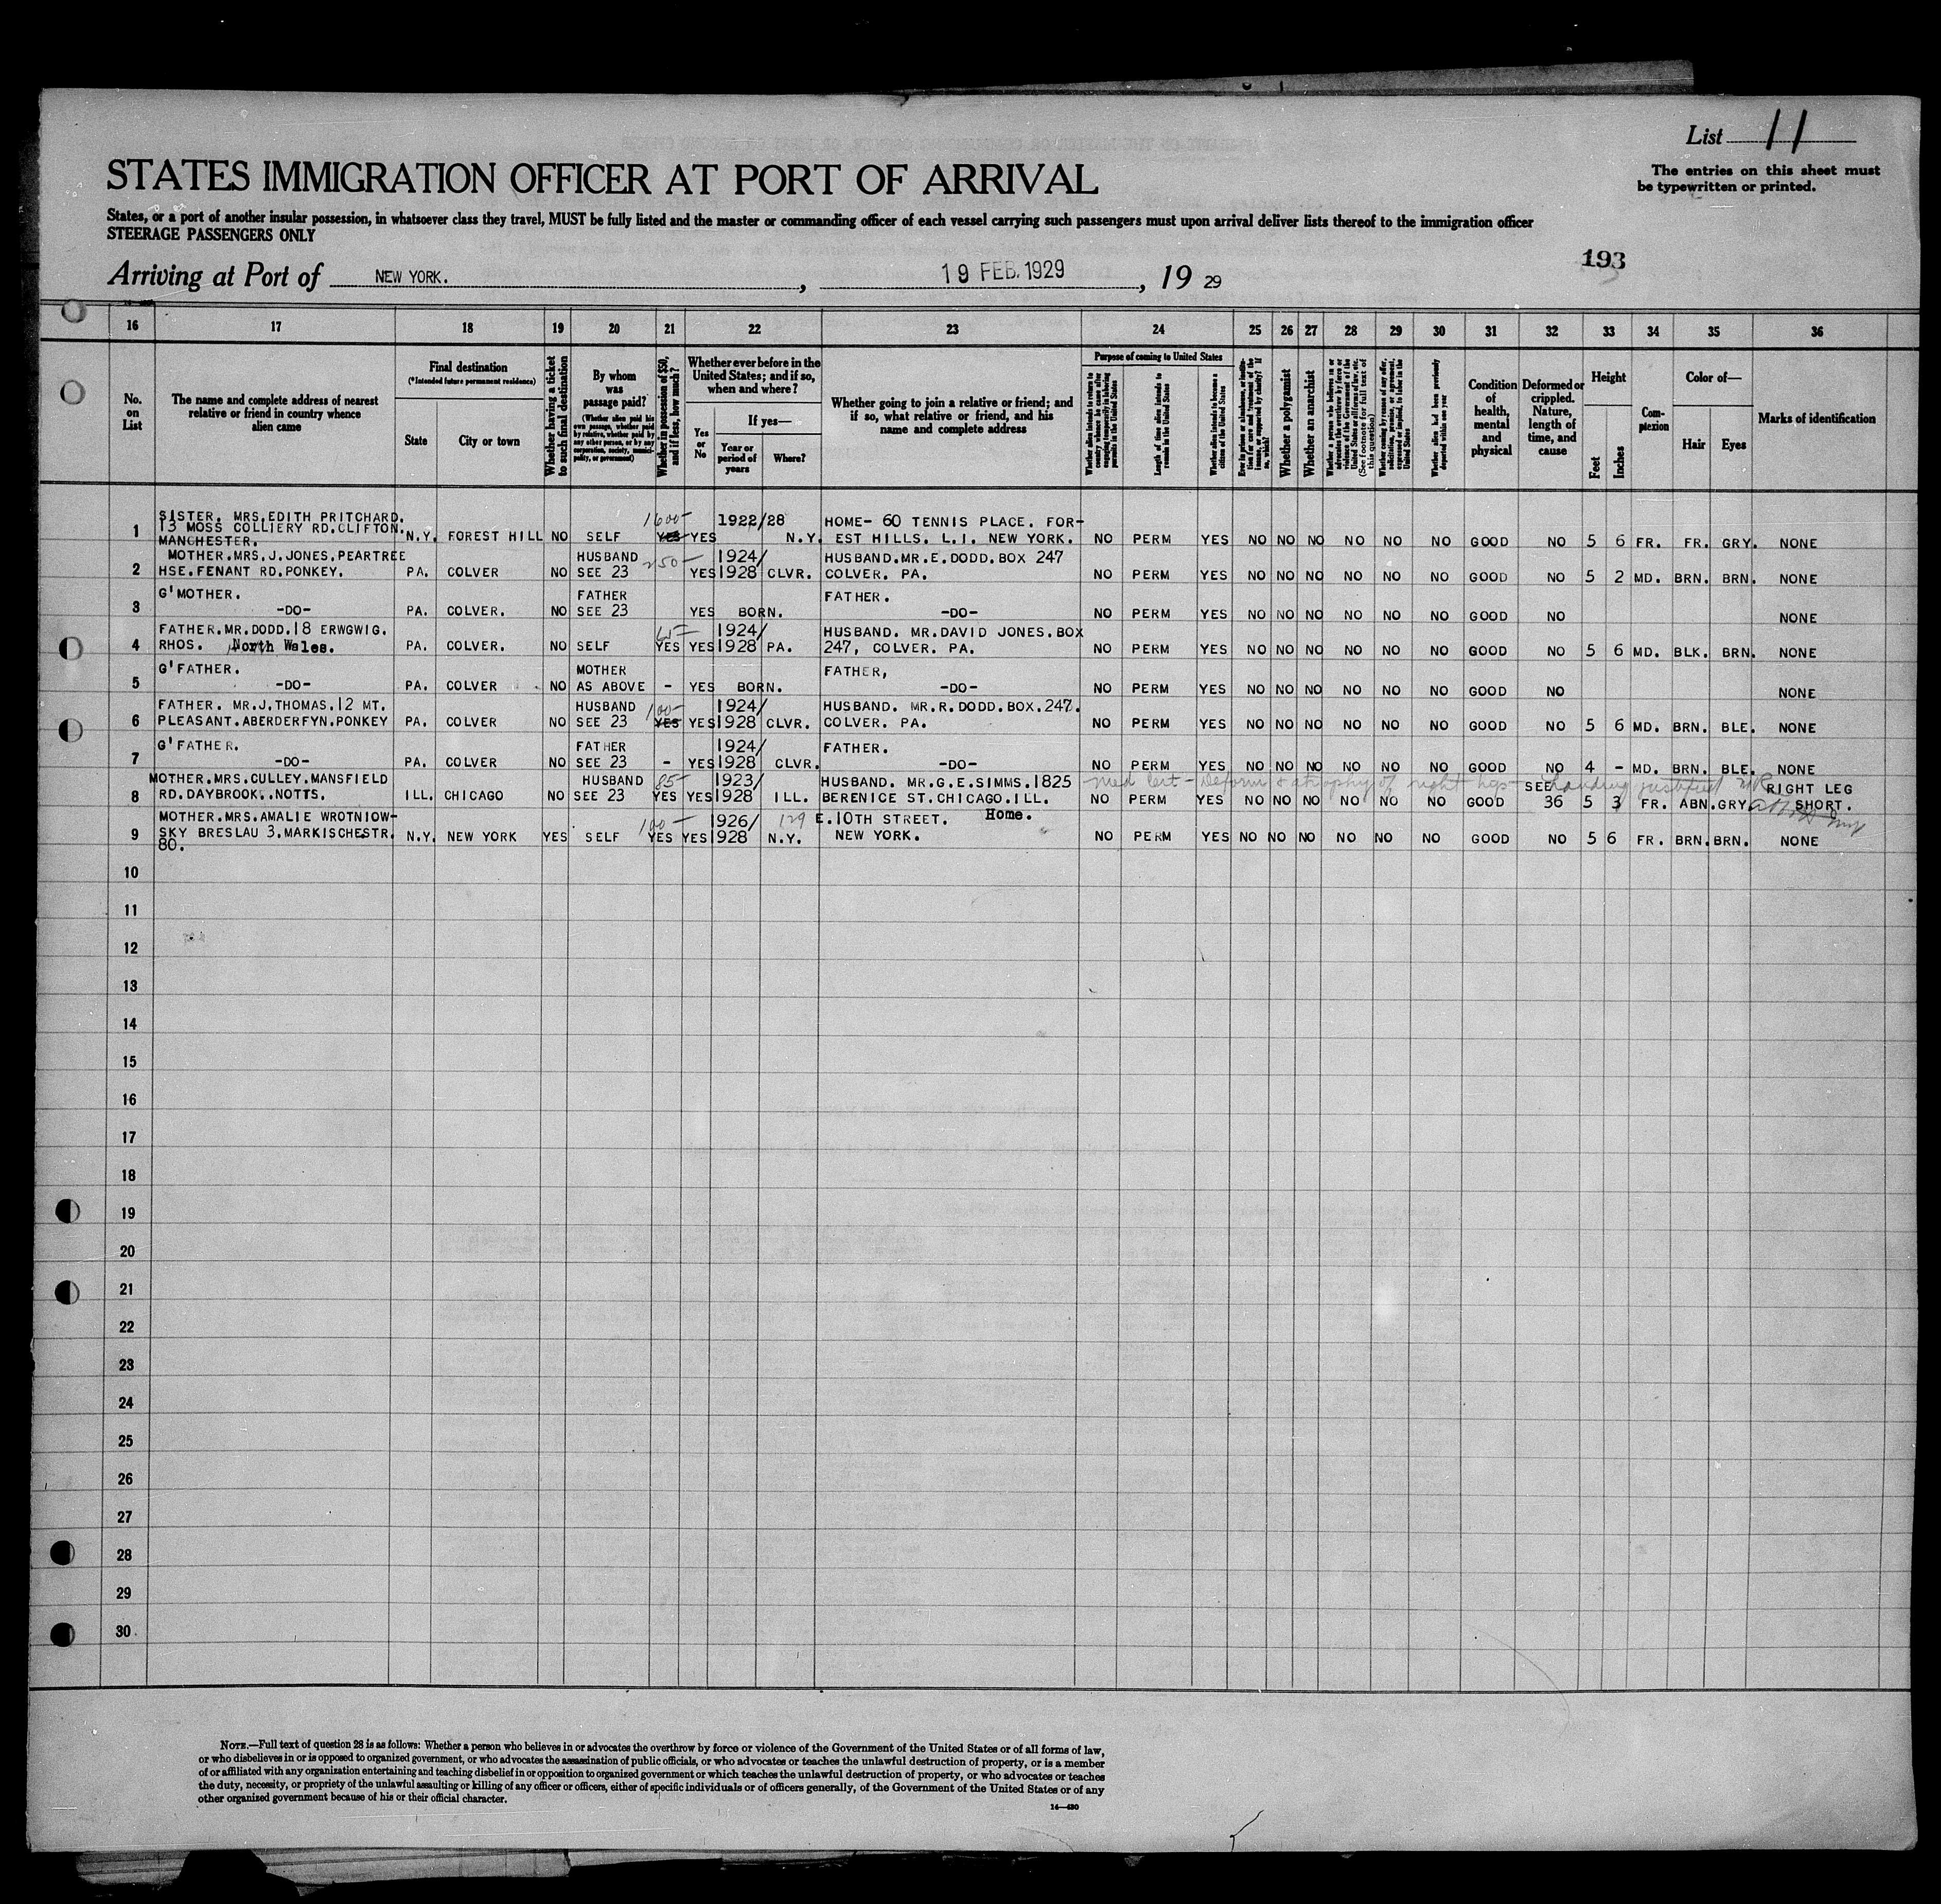 List 11
The entries on this sheet must
be typewritten or printed.
STATES IMMIGRATION OFFICER AT PORT OF ARRIVAL
States, or a port of another insular possession, in whatsoever class they travel, MUST be fully listed and the master or commanding officer of each vessel carrying such passengers must upon arrival deliver lists thereof to the immigration officer
STEERAGE PASSENGERS ONLY
193
Arriving at Port of NEW YORK. , 19 FEB. 1929 , 19 29
16 17 18 19 20 21 22 23 24 25 26 27 28 29 30 31 32 33 34 35 36
No. on List
The name and complete address of nearest relative or friend in country whence alien came
Final destination
(*Intended future permanent residence)
State
City or town
Whether having a ticket to such final destination
By whom was passage paid?
(Whether alien paid his own passage, whether paid by relative, whether paid by any other person, or by any corporation, society, municipality, or government)
Whether in possession of $50, and if less, how much?
Whether ever before in the United States; and if so, when and where?
Yes or No
If yes—
Year or period of years
Where?
Whether going to join a relative or friend; and if so, what relative or friend, and his name and complete address
Purpose of coming to United States
Whether alien intends to return to country whence he came after engaging temporarily in laboring pursuits in the United States
Length of time alien intends to remain in the United States
Whether alien intends to become a citizen of the United States
Whether a polygamist
Whether an anarchist
(See footnote for full text of this question)
Whether alien had been previously deported within one year
Condition of health, mental and physical
Deformed or crippled. Nature, length of time, and cause
Height
Feet
Inches
Complexion
Color of—
Hair
Eyes
Marks of identification
SISTER. MRS.EDITH PRITCHARD. 1600- 1922/28 HOME- 60 TENNIS PLACE. FOR-
13 MOSS COLLIERY RD.CLIFTON.
1 MANCHESTER. N.Y. FOREST HILL NO SELF YES YES N.Y. EST HILLS. L.I. NEW YORK. NO PERM YES NO NO NO NO NO NO GOOD NO 5 6 FR. FR. GRY. NONE
MOTHER.MRS.J.JONES.PEARTREE HUSBAND 250- 1924/ HUSBAND.MR.E.DODD.BOX 247
2 HSE.FENANT RD.PONKEY. PA. COLVER NO SEE 23 YES 1928 CLVR. COLVER. PA. NO PERM YES NO NO NO NO NO NO GOOD NO 5 2 MD. BRN. BRN. NONE
G'MOTHER. FATHER FATHER.
3 -DO- PA. COLVER. NO SEE 23 YES BORN. -DO- NO PERM YES NO NO NO NO NO NO GOOD NO NONE
FATHER.MR.DODD.18 ERWGWIG. 1924/ HUSBAND. MR.DAVID JONES.BOX
4 RHOS. North Wales. PA. COLVER. NO SELF YES YES 1928 PA. 247, COLVER. PA. NO PERM YES NO NO NO NO NO NO GOOD NO 5 6 MD. BLK. BRN. NONE
G'FATHER. MOTHER FATHER,
5 -DO- PA. COLVER NO AS ABOVE - YES BORN. -DO- NO PERM YES NO NO NO NO NO NO GOOD NO NONE
FATHER. MR.J.THOMAS.12 MT. HUSBAND 100- 1924/ HUSBAND. MR.R.DODD.BOX.247.
6 PLEASANT.ABERDERFYN.PONKEY PA. COLVER NO SEE 23 YES YES 1928 CLVR. COLVER. PA. NO PERM YES NO NO NO NO NO NO GOOD NO 5 6 MD. BRN. BLE. NONE
G'FATHER. FATHER 1924/ FATHER.
7 -DO- PA. COLVER NO SEE 23 - YES 1928 CLVR. -DO- NO PERM YES NO NO NO NO NO NO GOOD NO 4 - MD. BRN. BLE. NONE
MOTHER.MRS.CULLEY.MANSFIELD HUSBAND 85- 1923/ HUSBAND. MR.G.E.SIMMS.1825 Med Cert - Deform & atrophy of right leg - SEE Landing justified RIGHT LEG
8 RD.DAYBROOK..NOTTS. ILL. CHICAGO NO SEE 23 YES YES 1928 ILL. BERENICE ST.CHICAGO.ILL. NO PERM YES NO NO NO NO NO NO GOOD 36 5 3 FR. ABN. GRY. SHORT.
MOTHER.MRS.AMALIE WROTNIOW- 100- 1926/ 129 E.10TH STREET. Home.
9 SKY BRESLAU 3.MARKISCHESTR. N.Y. NEW YORK YES SELF YES YES 1928 N.Y. NEW YORK. NO PERM YES NO NO NO NO NO NO GOOD NO 5 6 FR. BRN. BRN. NONE
80.
10
11
12
13
14
15
16
17
18
19
20
21
22
23
24
25
26
27
28
29
30
NOTE.—Full text of question 28 is as follows: Whether a person who believes in or advocates the overthrow by force or violence of the Government of the United States or of all forms of law,
or who disbelieves in or is opposed to organized government, or who advocates the assassination of public officials, or who advocates or teaches the unlawful destruction of property, or is a member
of or affiliated with any organization entertaining and teaching disbelief in or opposition to organized government or which teaches the unlawful destruction of property, or who advocates or teaches
the duty, necessity, or propriety of the unlawful assaulting or killing of any officer or officers, either of specific individuals or of officers generally, of the Government of the United States or of any
other organized government because of his or their official character.
14—430